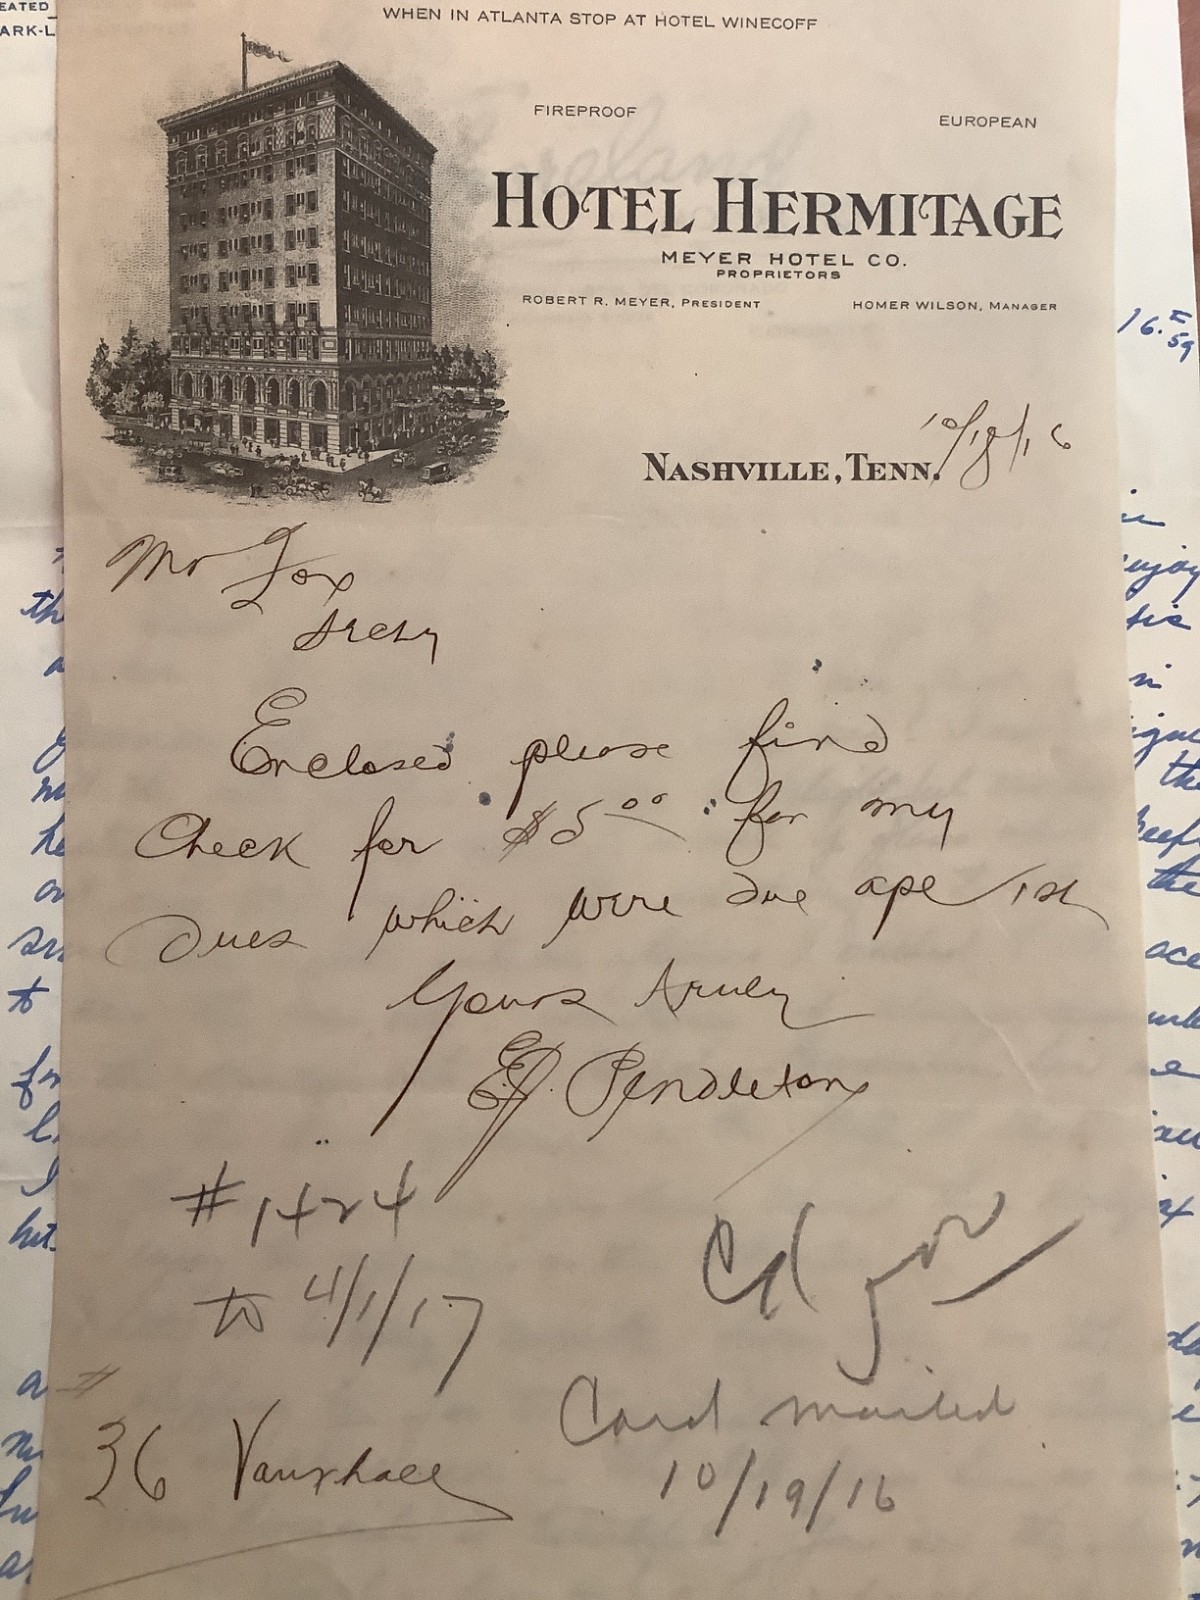 WHEN IN ATLANTA STOP AT HOTEL WINECOFF
FIREPROOF EUROPEAN
HOTEL HERMITAGE
MEYER HOTEL CO.
PROPRIETORS
ROBERT R. MEYER, PRESIDENT HOMER WILSON, MANAGER
NASHVILLE, TENN. 10/18/16
Mr Fox
Secty
Enclosed please find
Check for $5 00 for my
Dues which were due Apr 1st
Yours Truly
E.J. Pendleton
#1424
to 4/1/17
Card mailed
10/19/16
# 36 Vauxhall
EATED
ARK-L
16.
59
enjoy
the
the
to
I